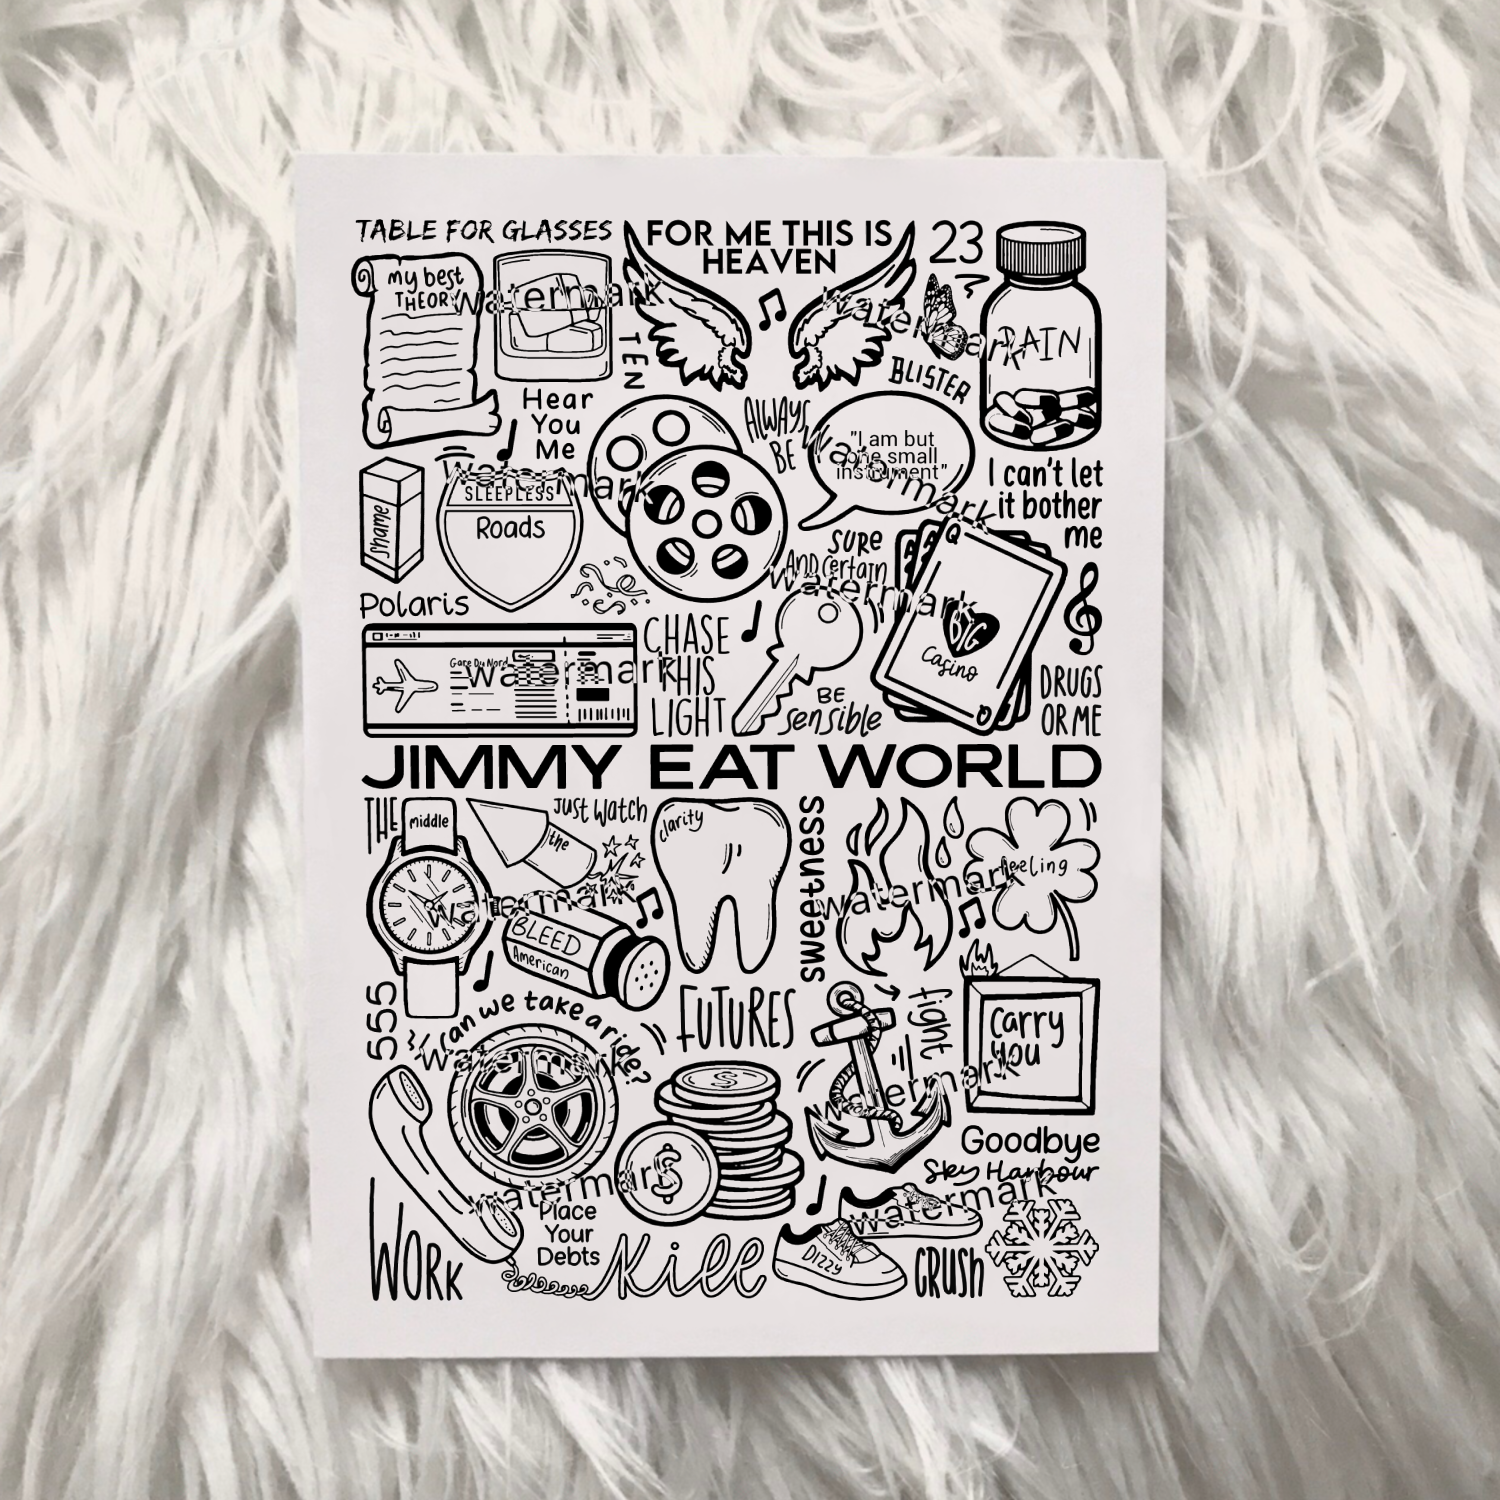 TABLE FOR GLASSES
FOR ME THIS IS
HEAVEN
23
my best
THEORY
watermark
watermark
PAIN
TEN
BLISTER
Hear
You
Me
ALWAYS
BE
"I am but
one small
instrument"
watermark
watermark
SLEEPLESS
Roads
shame
I can't let
it bother
me
SURE
AND Certain
watermark
Q
A
A
Polaris
BIG
Casino
Q
CHASE
THIS
LIGHT
Gare Du Nord
watermark
BE
Sensible
DRUGS
OR ME
JIMMY EAT WORLD
THE
middle
Just Watch
the
clarity
sweetness
feeling
watermark
watermark
BLEED
American
555
can we take a ride?
watermark
FUTURES
fight
Carry
You
watermark
$
$
Goodbye
Sky Harbour
watermark
watermark
WORK
Place
Your
Debts
Kill
DIZZY
CRUSH